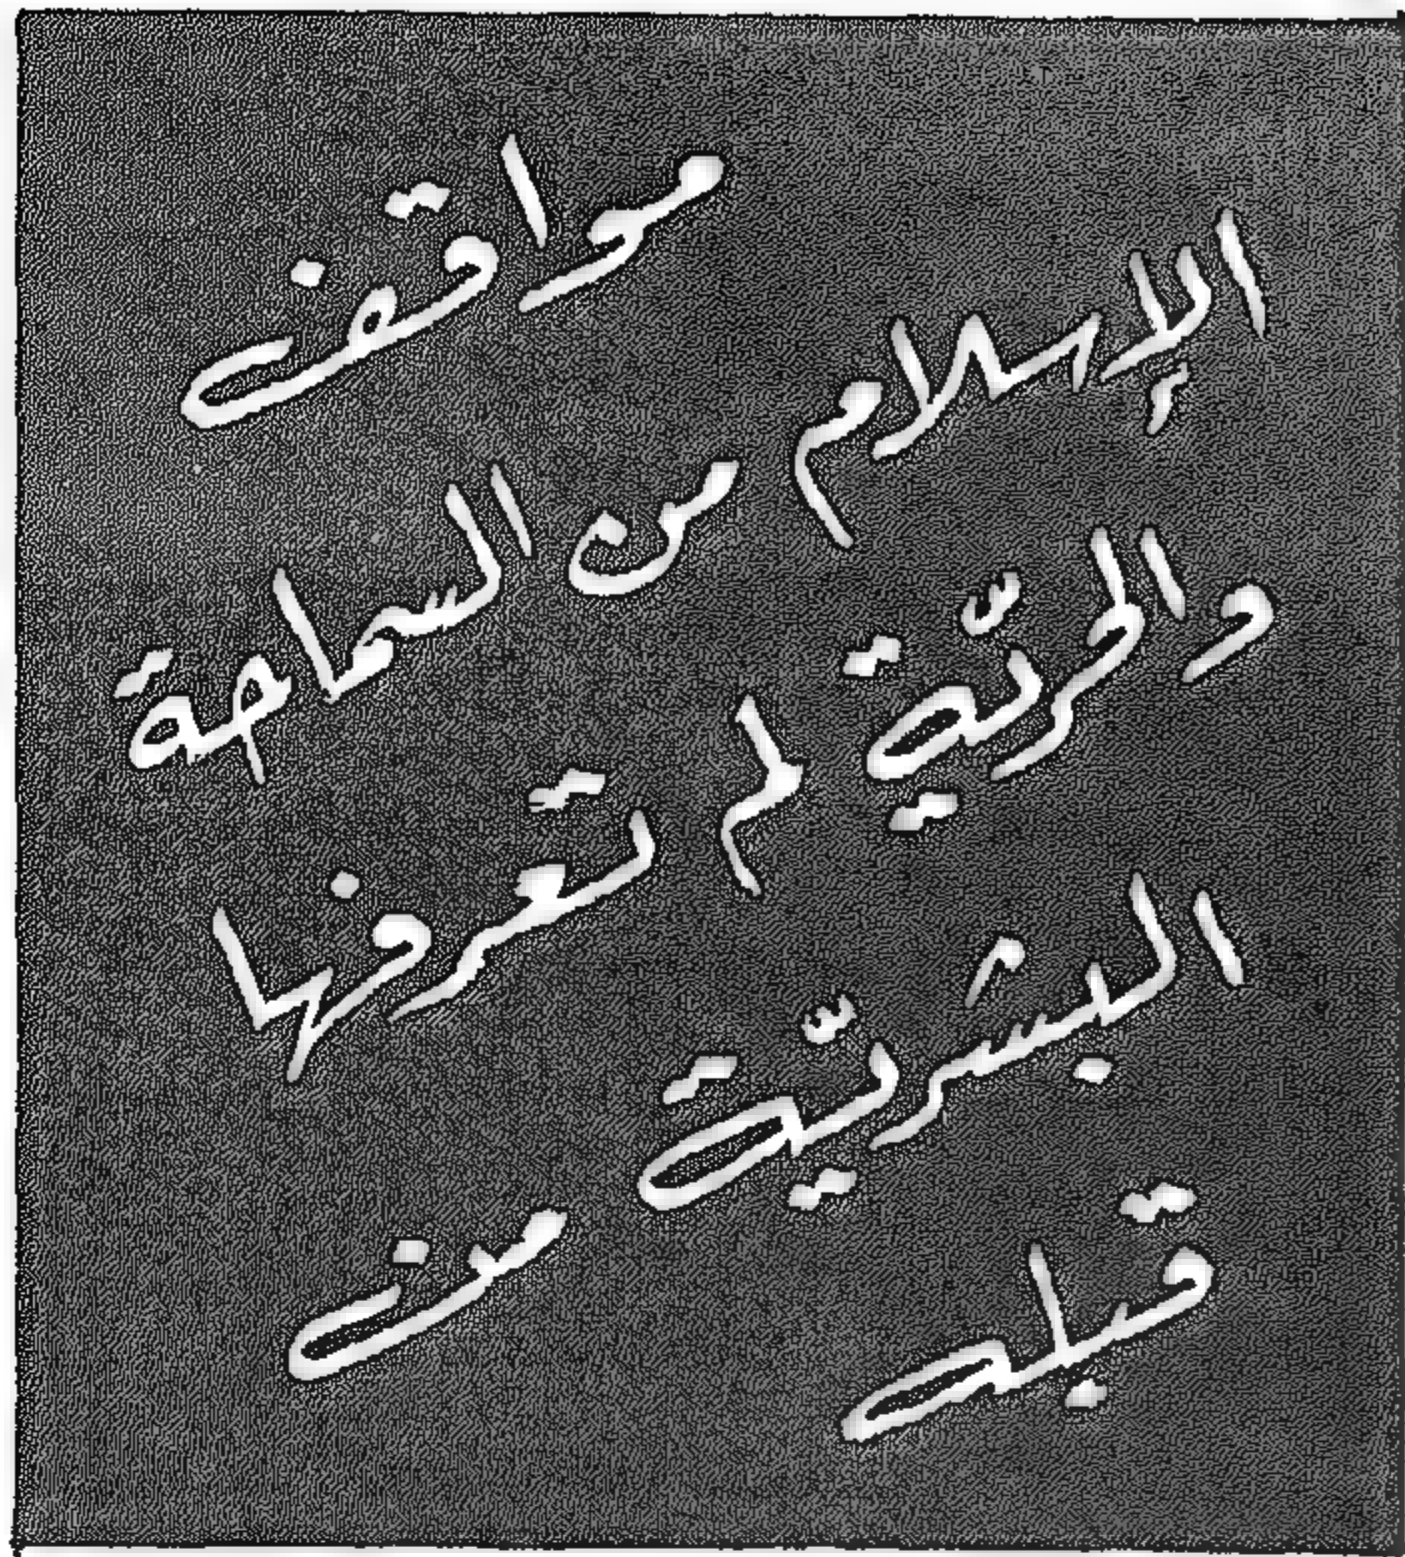 مواقف
الإسلام من السماحة
والحريّة لم تعرفها
البشريّة من
قبله